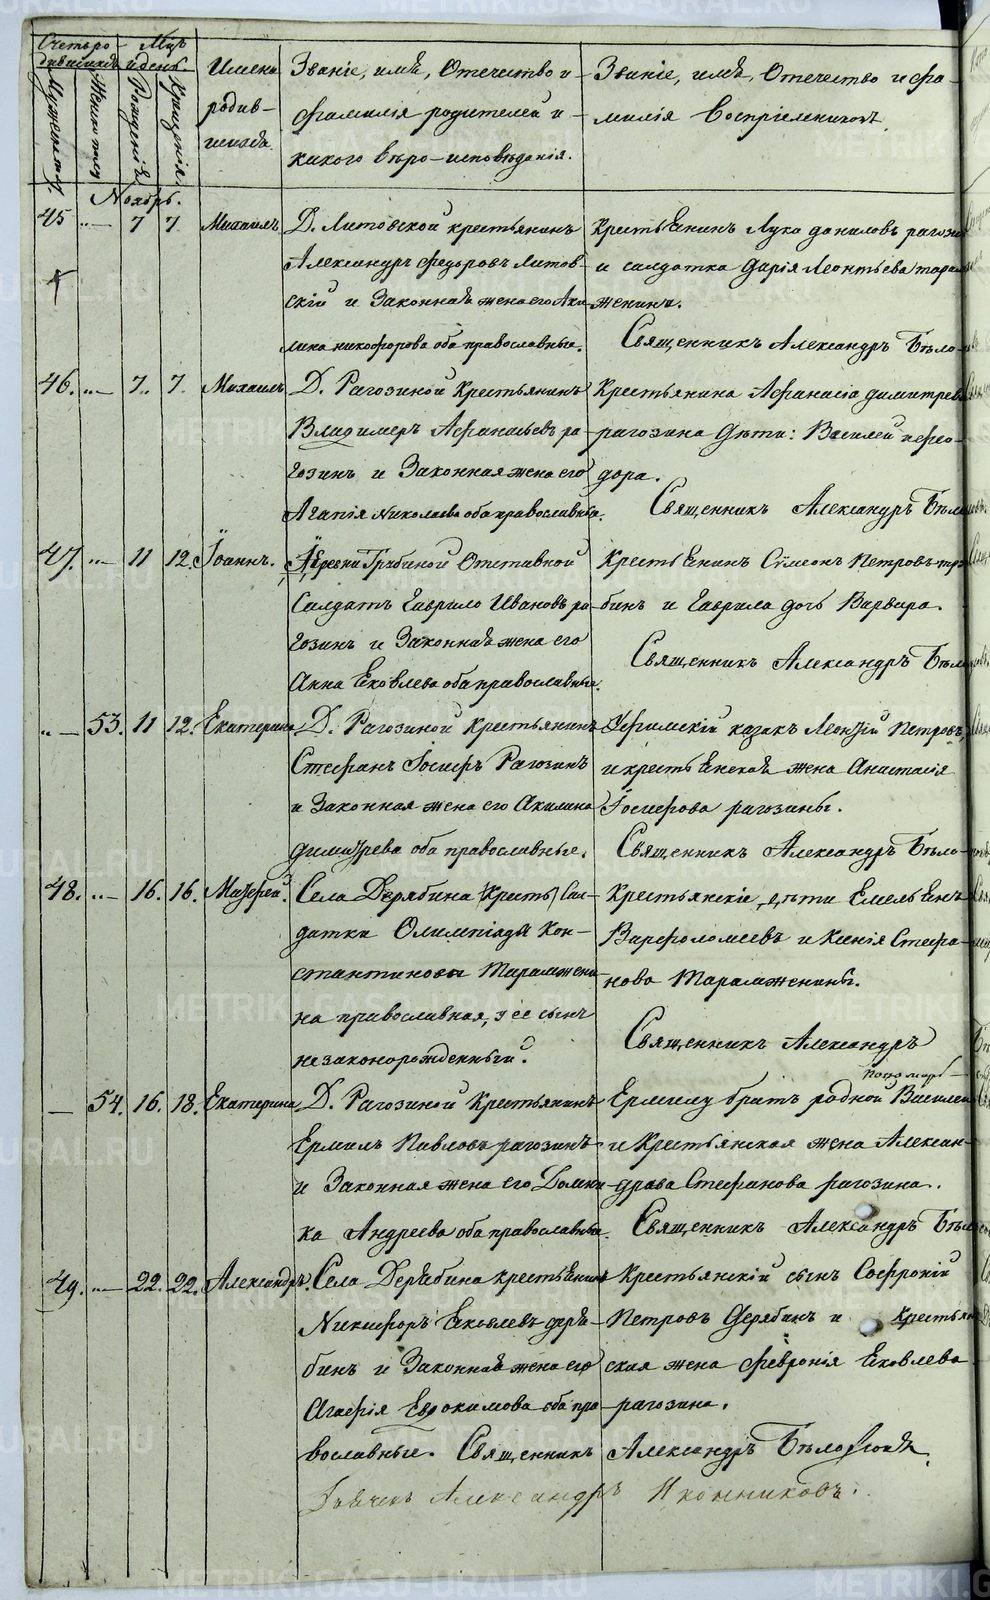 Счетъ ро-
дившихся
Мцъ
и день.
Мужеска полу
Женска полу
Рожденія
Крещенія
Имена
родив-
шихся
Званіе, имя, Отечество и
фамилія родителей и
какого веро-исповеданія.
Званіе, имя, Отечество и фа-
милія Воспріемниковъ
Ноябрь.
45 „— 7 7 Михаилъ
Д. Литовской крестьянинъ
Александръ Федоровъ Литов-
скій и Законная жена его Аки-
лина никифорова оба православные.
Крестьянинъ Лука даниловъ
и салдатка Дарія Леонтьева
женина.
Священникъ Александръ Бѣло-
46. „— 7. 7. Михаилъ
Д. Рагозиной Крестьянинъ
Владимеръ Афанасьевъ ра-
гозинъ и Законная жена его
Агапія Николаева оба православные.
Крестьянина Афанасія димитрева
рагозина дѣти: Василей и фео-
дора.
Священникъ Александръ
47. „— 11 12. Іоаннъ.
Деревни Грибиной Отставной
Салдатъ Гаврило Ивановъ ра-
гозинъ и Законная жена его
Анна Яковлева оба православные.
Крестьянинъ Сѵмеонъ Петровъ гри-
бинъ и Гаврила дочь Варвара.
Священникъ Александръ
„— 53. 11 12. Екатерина
Д. Рагозиной крестьянинъ
Стефанъ Іосифъ Рагозинъ
и Законная жена его Акилина
димитрева оба православные.
Уфимскій казакъ Леонтій Петровъ,
и крестьянская жена Анастасія
Іосифова рагозины.
Священникъ Александръ Бѣло-
48. „— 16. 16. Матфей.
Села Дерябина (Кресть) Сал-
датки Олимпіады Кон-
стантиновы Тарамжени-
на православная, у ее сынъ
незаконорожденный.
Крестьянскіе дѣти Емельянъ
Варфоломеевъ и Ксенія Стефа-
нова Тарамженины.
Священникъ Александръ
— 54. 16. 18. Екатерина
Д. Рагозиной Крестьянинъ
Ермилъ Павловъ рагозинъ
и Законная жена его Домни-
ка Андреева оба православные.
пономарь
Ермилу братъ родной Василей
и Крестьянская жена Алексан-
драва Стефанова рагозина.
Священникъ Александръ
49. „— 22. 22. Александръ.
Села Дерябина крестьянинъ
Никифоръ Яковлевъ деря-
бинъ и Законная жена его
Агафія Евдокимова оба пра-
вославные.
Крестьянскій сынъ Софроній
Петровъ Дерябинъ и Крестьян-
ская жена Февронія Яковлева
рагозина.
Священникъ Александръ
Дьячекъ Александръ Иконниковъ.
METRIKI.GASO-URAL.RU